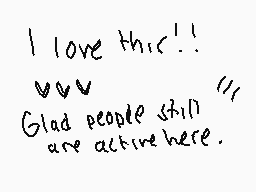 I love this!!
♥♥♥
Glad people still
are active here.